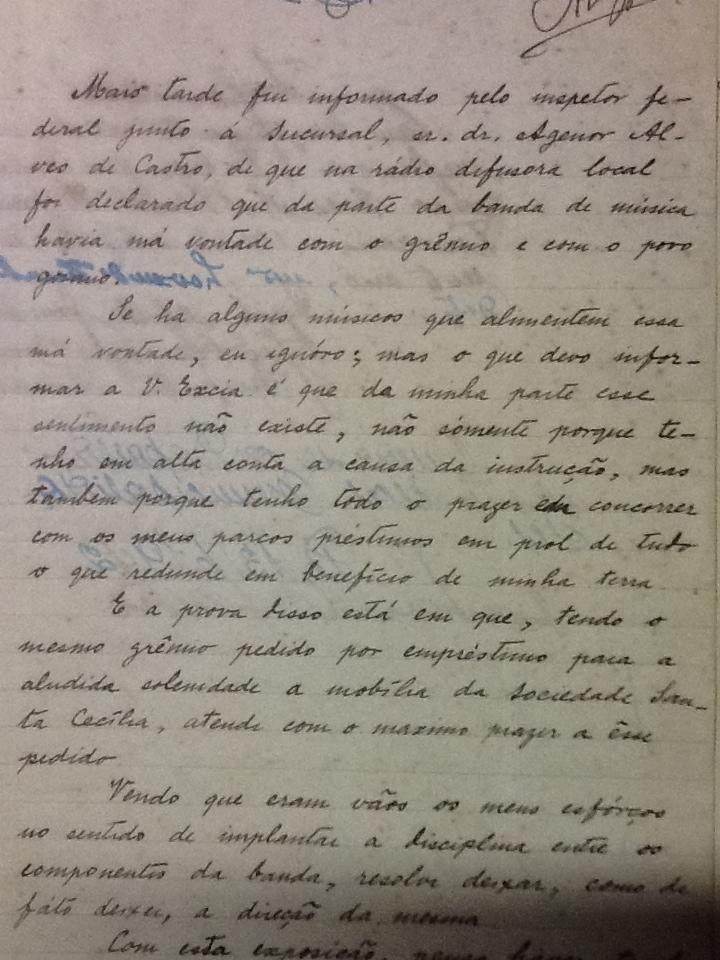 Mais tarde fui informado pelo inspetor fe-
deral junto á Sucursal, sr. dr. Agenor Al-
ves de Castro, de que na rádio difusora local
foi declarado que da parte da banda de música
havia má vontade com o grêmio e com o povo
goiano.
Se ha alguns músicos que alimentem essa
má vontade, eu ignóro; mas o que devo infor-
mar a V. Excia é que da minha parte esse
sentimento não existe, não sómente porque te-
nho em alta conta a causa da instrução, mas
tambem porque tenho todo o prazer em concorrer
com os meus parcos préstimos em prol de tudo
o que redunde em benefício de minha terra
E a prova disso está em que, tendo o
mesmo grêmio pedido por empréstimo para a
aludida solenidade a mobília da Sociedade San-
ta Cecília, atende com o maximo prazer a êsse
pedido
Vendo que eram vãos os meus esfórços
no sentido de implantar a disciplina entre os
componentes da banda, resolvi deixar, como de
fáto deixei, a direção da mesma
Com esta exposição,